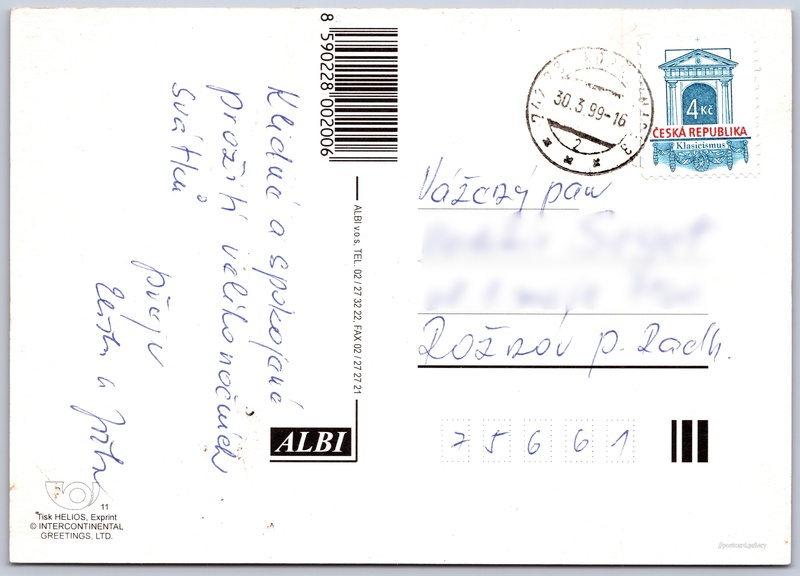 Klidné a spokojené
prožití velikonočních
svátků
přeje
8 590228 002006
ALBI v.o.s, TEL. 02 / 27 32 22, FAX 02 / 27 27 21
ALBI
11
Tisk HELIOS, Exprint
© INTERCONTINENTAL
GREETINGS, LTD.
30.3.99-16
2
4 Kč
ČESKÁ REPUBLIKA
Klasicismus
Vážený pan
Rožnov p. Radh.
75661
//postcard.gallery